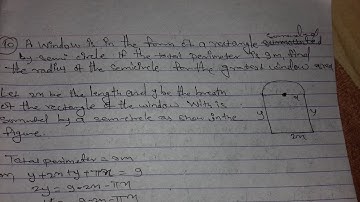 10) A window is in the form of a rectangle surmounted
by semi circle. If the total perimeter is 9m, find
the radius of the semicircle for the greatest window area
Let 2x be the length and y be the breath
of the rectangle of the window. With is
surmuted by a semi-circle as show in the
figure.
y x y
2x
Total perimeter = 9m
y + 2x + y + πx = 9
2y = 9 - 2x - πx